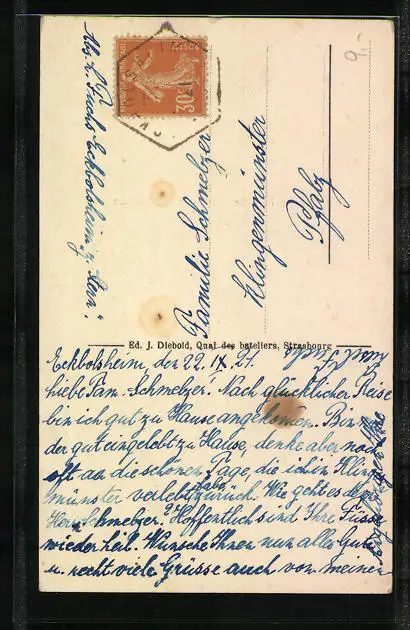 9,-
Abs. L. Fuchs Eckbolsheim, z. Stern.
30
Familie Schmelzer
Klingenmünster
Pfalz
Ed. J. Diebold, Quai des bateliers, Strasbourg
Eckbolsheim, den 22. IX. 21.
Liebe Fam. Schmelzer! Nach glücklicher Reise
bin ich gut zu Hause angekommen. Bin
der gut eingelebt zu Hause, denke aber noch
oft an die schönen Tage, die ich in Klingen
münster verlebt habe zurück. Wie geht es dem
Herrn Schmelzer? Hoffentlich sind Ihre Füsse
wieder heil. Wünsche Ihnen nun alles Gute
u. recht viele Grüsse auch von meinen